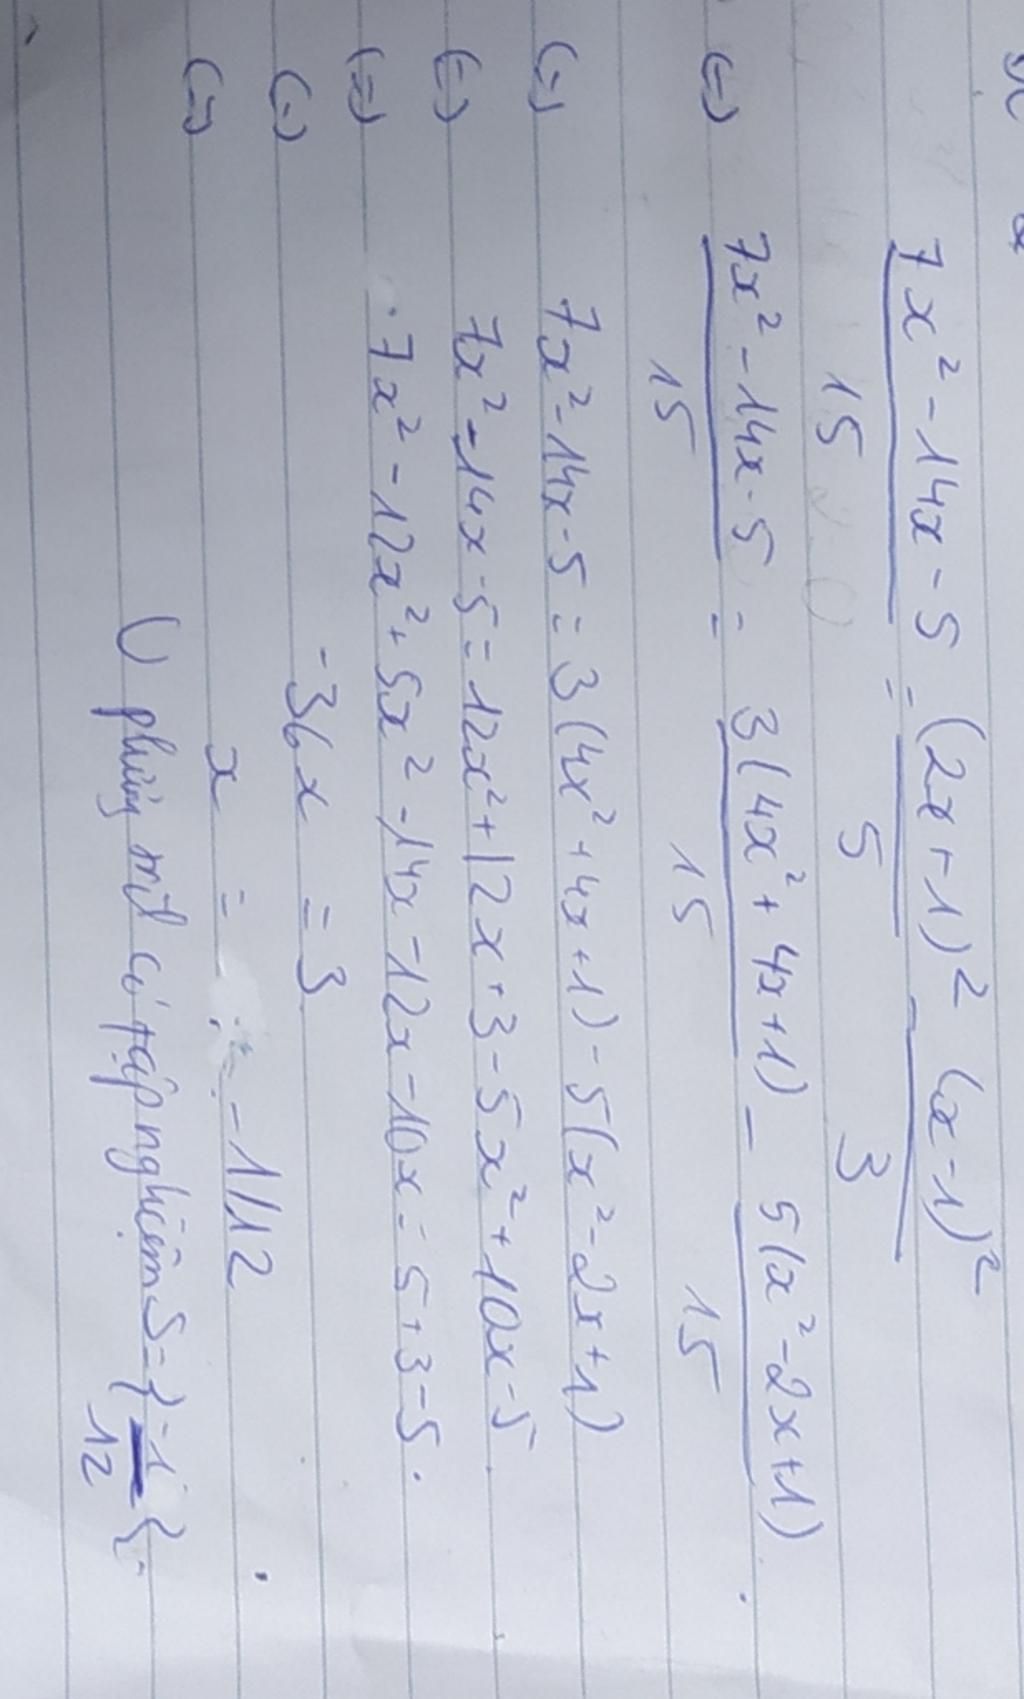 7x² - 14x - 5 = (2x+1)² (x-1)²
15 5 3
(=) 7x² - 14x - 5 = 3(4x² + 4x + 1) - 5(x² - 2x + 1)
15 15 15
(=) 7x² - 14x - 5 = 3(4x² + 4x + 1) - 5(x² - 2x + 1)
(=) 7x² - 14x - 5 = 12x² + 12x + 3 - 5x² + 10x - 5
(=) 7x² - 12x² + 5x² - 14x - 12x - 10x = 5 + 3 - 5.
(=) -36x = 3
(=) x = -1/12
phương trình có tập nghiệm S = { -1
12 }